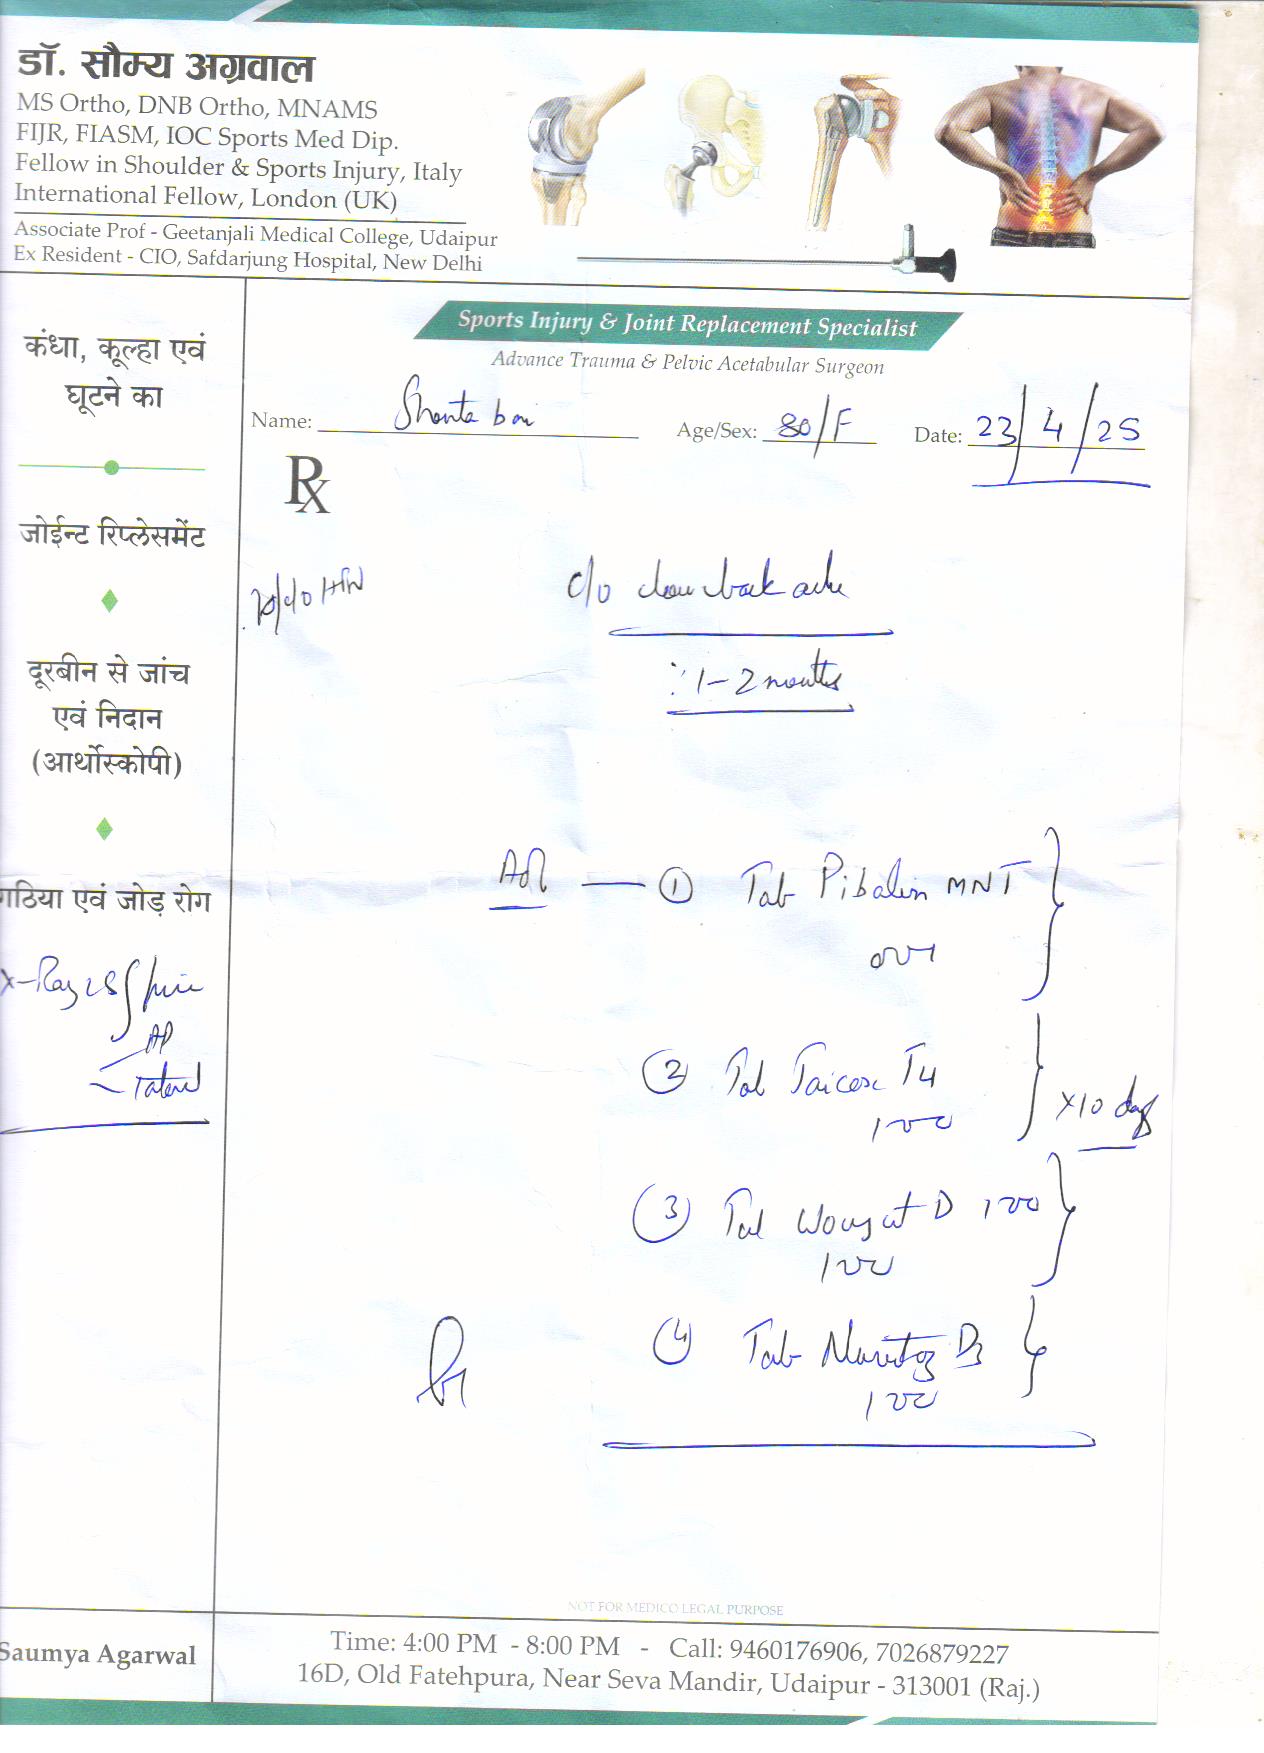 डॉ. सौम्य अग्रवाल
MS Ortho, DNB Ortho, MNAMS
FIJR, FIASM, IOC Sports Med Dip.
Fellow in Shoulder & Sports Injury, Italy
International Fellow, London (UK)
Associate Prof - Geetanjali Medical College, Udaipur
Ex Resident - CIO, Safdarjung Hospital, New Delhi
Sports Injury & Joint Replacement Specialist
Advance Trauma & Pelvic Acetabular Surgeon
Name: Shanta bai Age/Sex: 80/F Date: 23/4/25
Rx
कंधा, कूल्हा एवं
घूटने का
जोईन्ट रिप्लेसमेंट
दूरबीन से जांच
एवं निदान
(आर्थोस्कोपी)
गठिया एवं जोड़ रोग
X-Ray LS Spine
AP
Lateral
K/c/o HTN
c/o low back ache
1-2 months
Adv 1 Tab Pibalin MNT
2 Tab T4
x10 days
3 Tab D
4 Tab D3
NOT FOR MEDICO LEGAL PURPOSE
Saumya Agarwal
Time: 4:00 PM - 8:00 PM - Call: 9460176906, 7026879227
16D, Old Fatehpura, Near Seva Mandir, Udaipur - 313001 (Raj.)